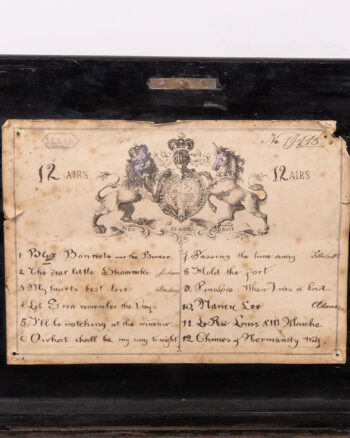 No
12 AIRS
12 AIRS
DIEU ET MON DROIT
1 Blue Bonnets over the Border
2 The dear little Shamrock
3 My hearts best love
4 Let Erin remember the days
5 I'll be watching at the window
6 O what shall be my song to night
7 Passing the time away
8 Hold the fort
9 Pinafore When I was a lad
10 Nancy Lee Adams
11 Le Roi Louis XIII Marche
12 Chimes of Normandy Waltz